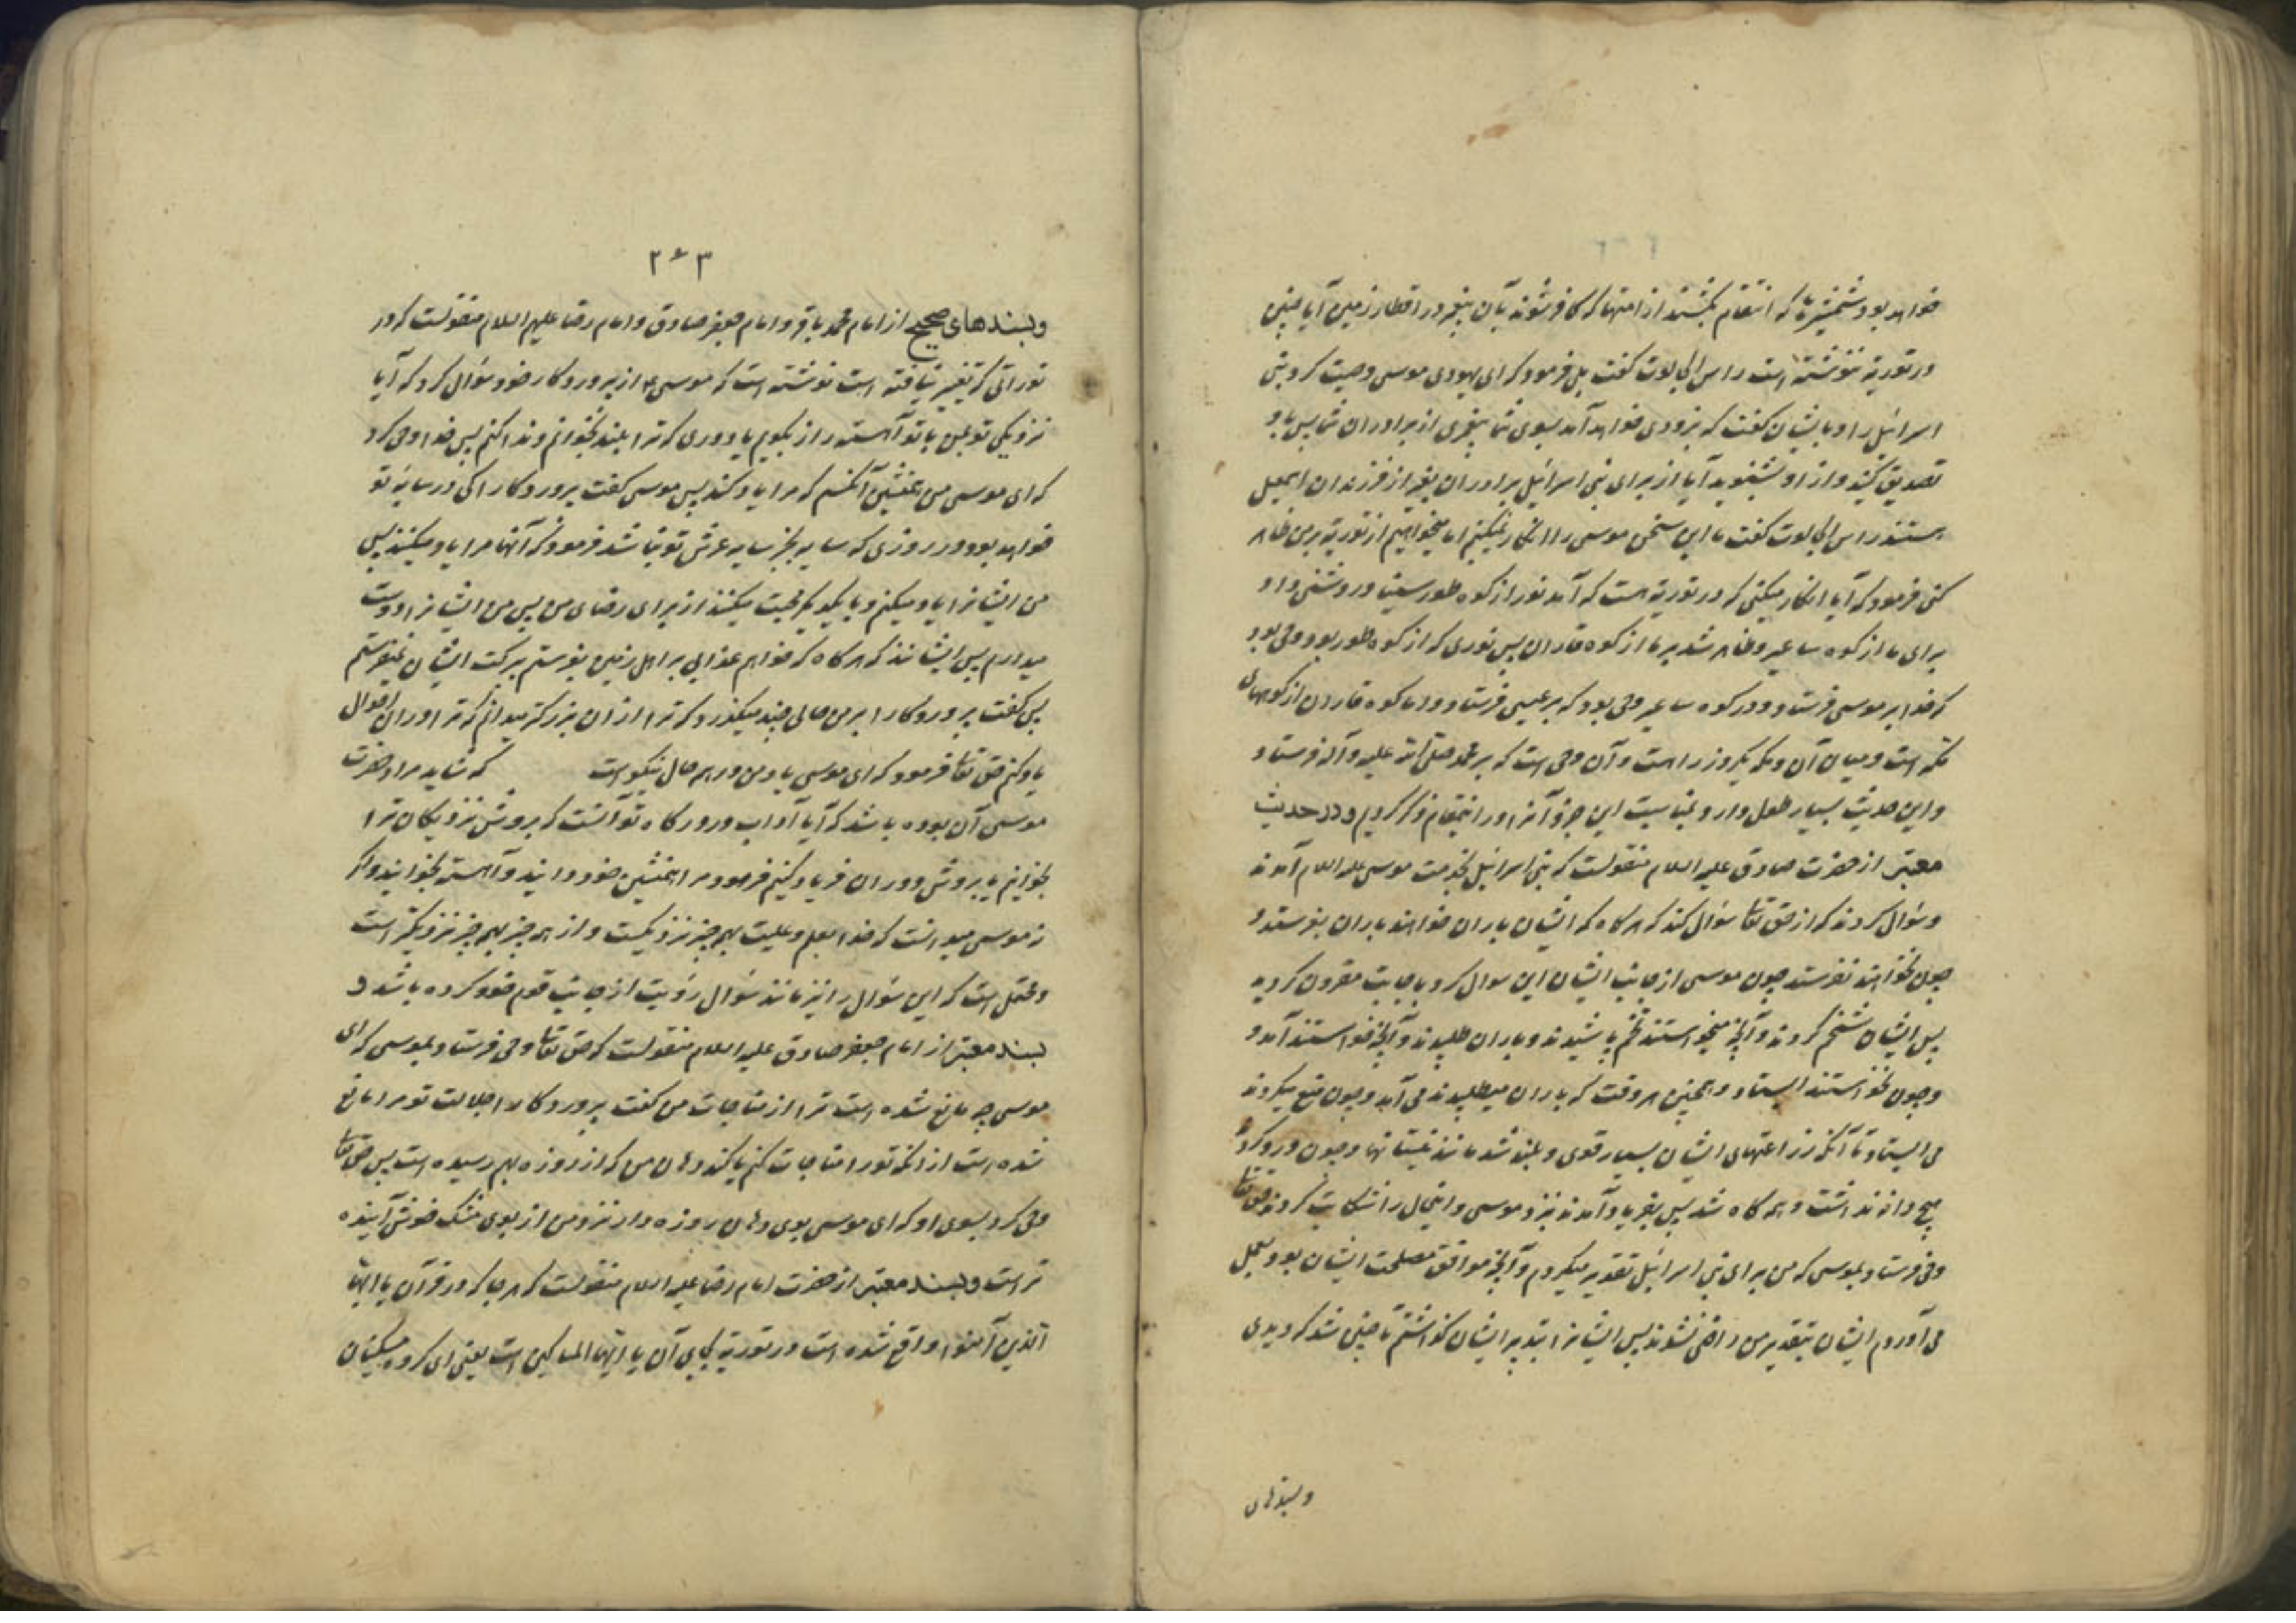 خواهد بود شمشیرها که انتقام بکشند از امتها که کافر شوند بآن پیغمبر در اقطار زمین آیا چنین
در توریة نوشته است راس الجالوت گفت بلی فرمود که ای یهودی موسی وصیت کرد بنی
اسرائیل را و بایشان گفت که بزودی خواهد آمد بسوی شما پیغمبری از برادران شما پس باو
تصدیق کنید و از او بشنوید آیا از برای بنی اسرائیل برادران بغیر از فرزندان اسمعیل
هستند راس الجالوت گفت ما این سخن موسی را انکار نمیکنیم اما میخواهیم از توریة بر من ظاهر
کنی فرمود که آیا انکار میکنی که در توریة هست که آمد نور از کوه طور سینا و روشنی داد
برای ما از کوه ساعیر و ظاهر شد بر ما از کوه فاران پس نوری که از کوه طور بود وحی بود
که خدا بر موسی فرستاد و در کوه ساعیر وحی بود که بر عیسی فرستاد و اما کوه فاران از کوههای
مکه است و میان آن و مکه یکروز راهست و آن وحی است که بر محمد صلی الله علیه وآله فرستاد
و این حدیث بسیار طول دارد و بمناسبت این جزو آنرا در اینمقام ذکر کردیم و در حدیث
معتبر از حضرت صادق علیه السلام منقولست که بنی اسرائیل بخدمت موسی علیه السلام آمدند
و سؤال کردند که از حق تعالی سؤال کند که هرگاه که ایشان باران خواهند باران بفرستد و
چون نخواهند نفرستد چون موسی از جانب ایشان این سوال کرد باجابت مقرون گردید
پس ایشان شخم کردند و آنچه میخواستند تخم پاشیدند و باران طلبیدند و آنچه خواستند آمد و
و چون نخواستند ایستاد و همچنین هر وقت که باران میطلبیدند می آمد و چون منع میکردند
می ایستاد تا آنکه زراعتهای ایشان بسیار قوی و بلند شد مانند نیستانها و چون درو کردند
هیچ دانه نداشت و همه کاه شد پس بفریاد آمدند نزد موسی و اینحال را شکایت کردند حق تعالی
وحی فرستاد بموسی که من برای بنی اسرائیل تقدیر میکردم و آنچه موافق مصلحت ایشان بود بعمل
می آوردم ایشان بتقدیر من راضی نشوند پس ایشانرا بتدبیر ایشان گذاشتم تا چنین شد که دیدی
و بسندهای
۲۶۳
و بسندهای صحیح از امام محمد باقر و امام جعفر صادق و امام رضا علیهم السلام منقولست که در
توراتی که تغییر نیافته است نوشته است که موسی ع از پروردگار خود سؤال کرد که آیا
نزدیکی تو بمن تا با تو آهسته راز بگویم یا دوری که ترا بلند بخوانم و ندا کنم پس خدا وحی کرد
که ای موسی من همنشین آنکسم که مرا یاد کند پس موسی گفت پروردگارا کی در سایهٔ تو
خواهد بود در روزی که سایه بجز سایه عرش تو نباشد فرمود که آنها مرا یاد میکنند پس
من ایشانرا یاد میکنم و با یکدیگر محبت میکنند از برای رضای من پس من ایشانرا دوست
میدارم پس ایشانند که هرگاه که خواهم عذابی بر اهل زمین بفرستم ببرکت ایشان نمیفرستم
پس گفت پروردگارا بر من حالی چند میگذرد که ترا از آن بزرگتر میدانم که ترا در آن احوال
یاد کنم حق تعالی فرمود که ای موسی یاد من در همه حال نیکو است که شاید مراد حضرت
موسی آن بوده باشد که آیا آداب در درگاه تو آنست که بروش نزدیکان ترا
بخوانیم یا بروش دوران فریاد کنیم فرمود مرا همنشین خود دانید و آهسته بخوانید و اگر
نه موسی میدانست که خدا بعلم و علیت بهمه چیز نزدیکست و از همه چیز بهمه چیز نزدیکتر است
و محتمل است که این سؤال را نیز مانند سؤال رؤیت از جانب قوم خود کرده باشد و
بسند معتبر از امام جعفر صادق علیه السلام منقولست که حق تعالی وحی فرستاد بموسی که ای
موسی چه مانع شده است ترا از مناجات من گفت پروردگارا جلالت تو مرا مانع
شده است از آنکه تو را مناجات کنم با گند دهان من که از روزه بهم رسیده است پس حق تعالی
وحی کرد بسوی او که ای موسی بوی دهان روزه دار نزد من از بوی مشک خوش آینده
تر است و بسند معتبر از حضرت امام رضا علیه السلام منقولست که هر جا که در قرآن یا ایها
الذین آمنوا واقع شده است در توریة بجای آن یا ایها المساکین است یعنی ای گروه مسکینان